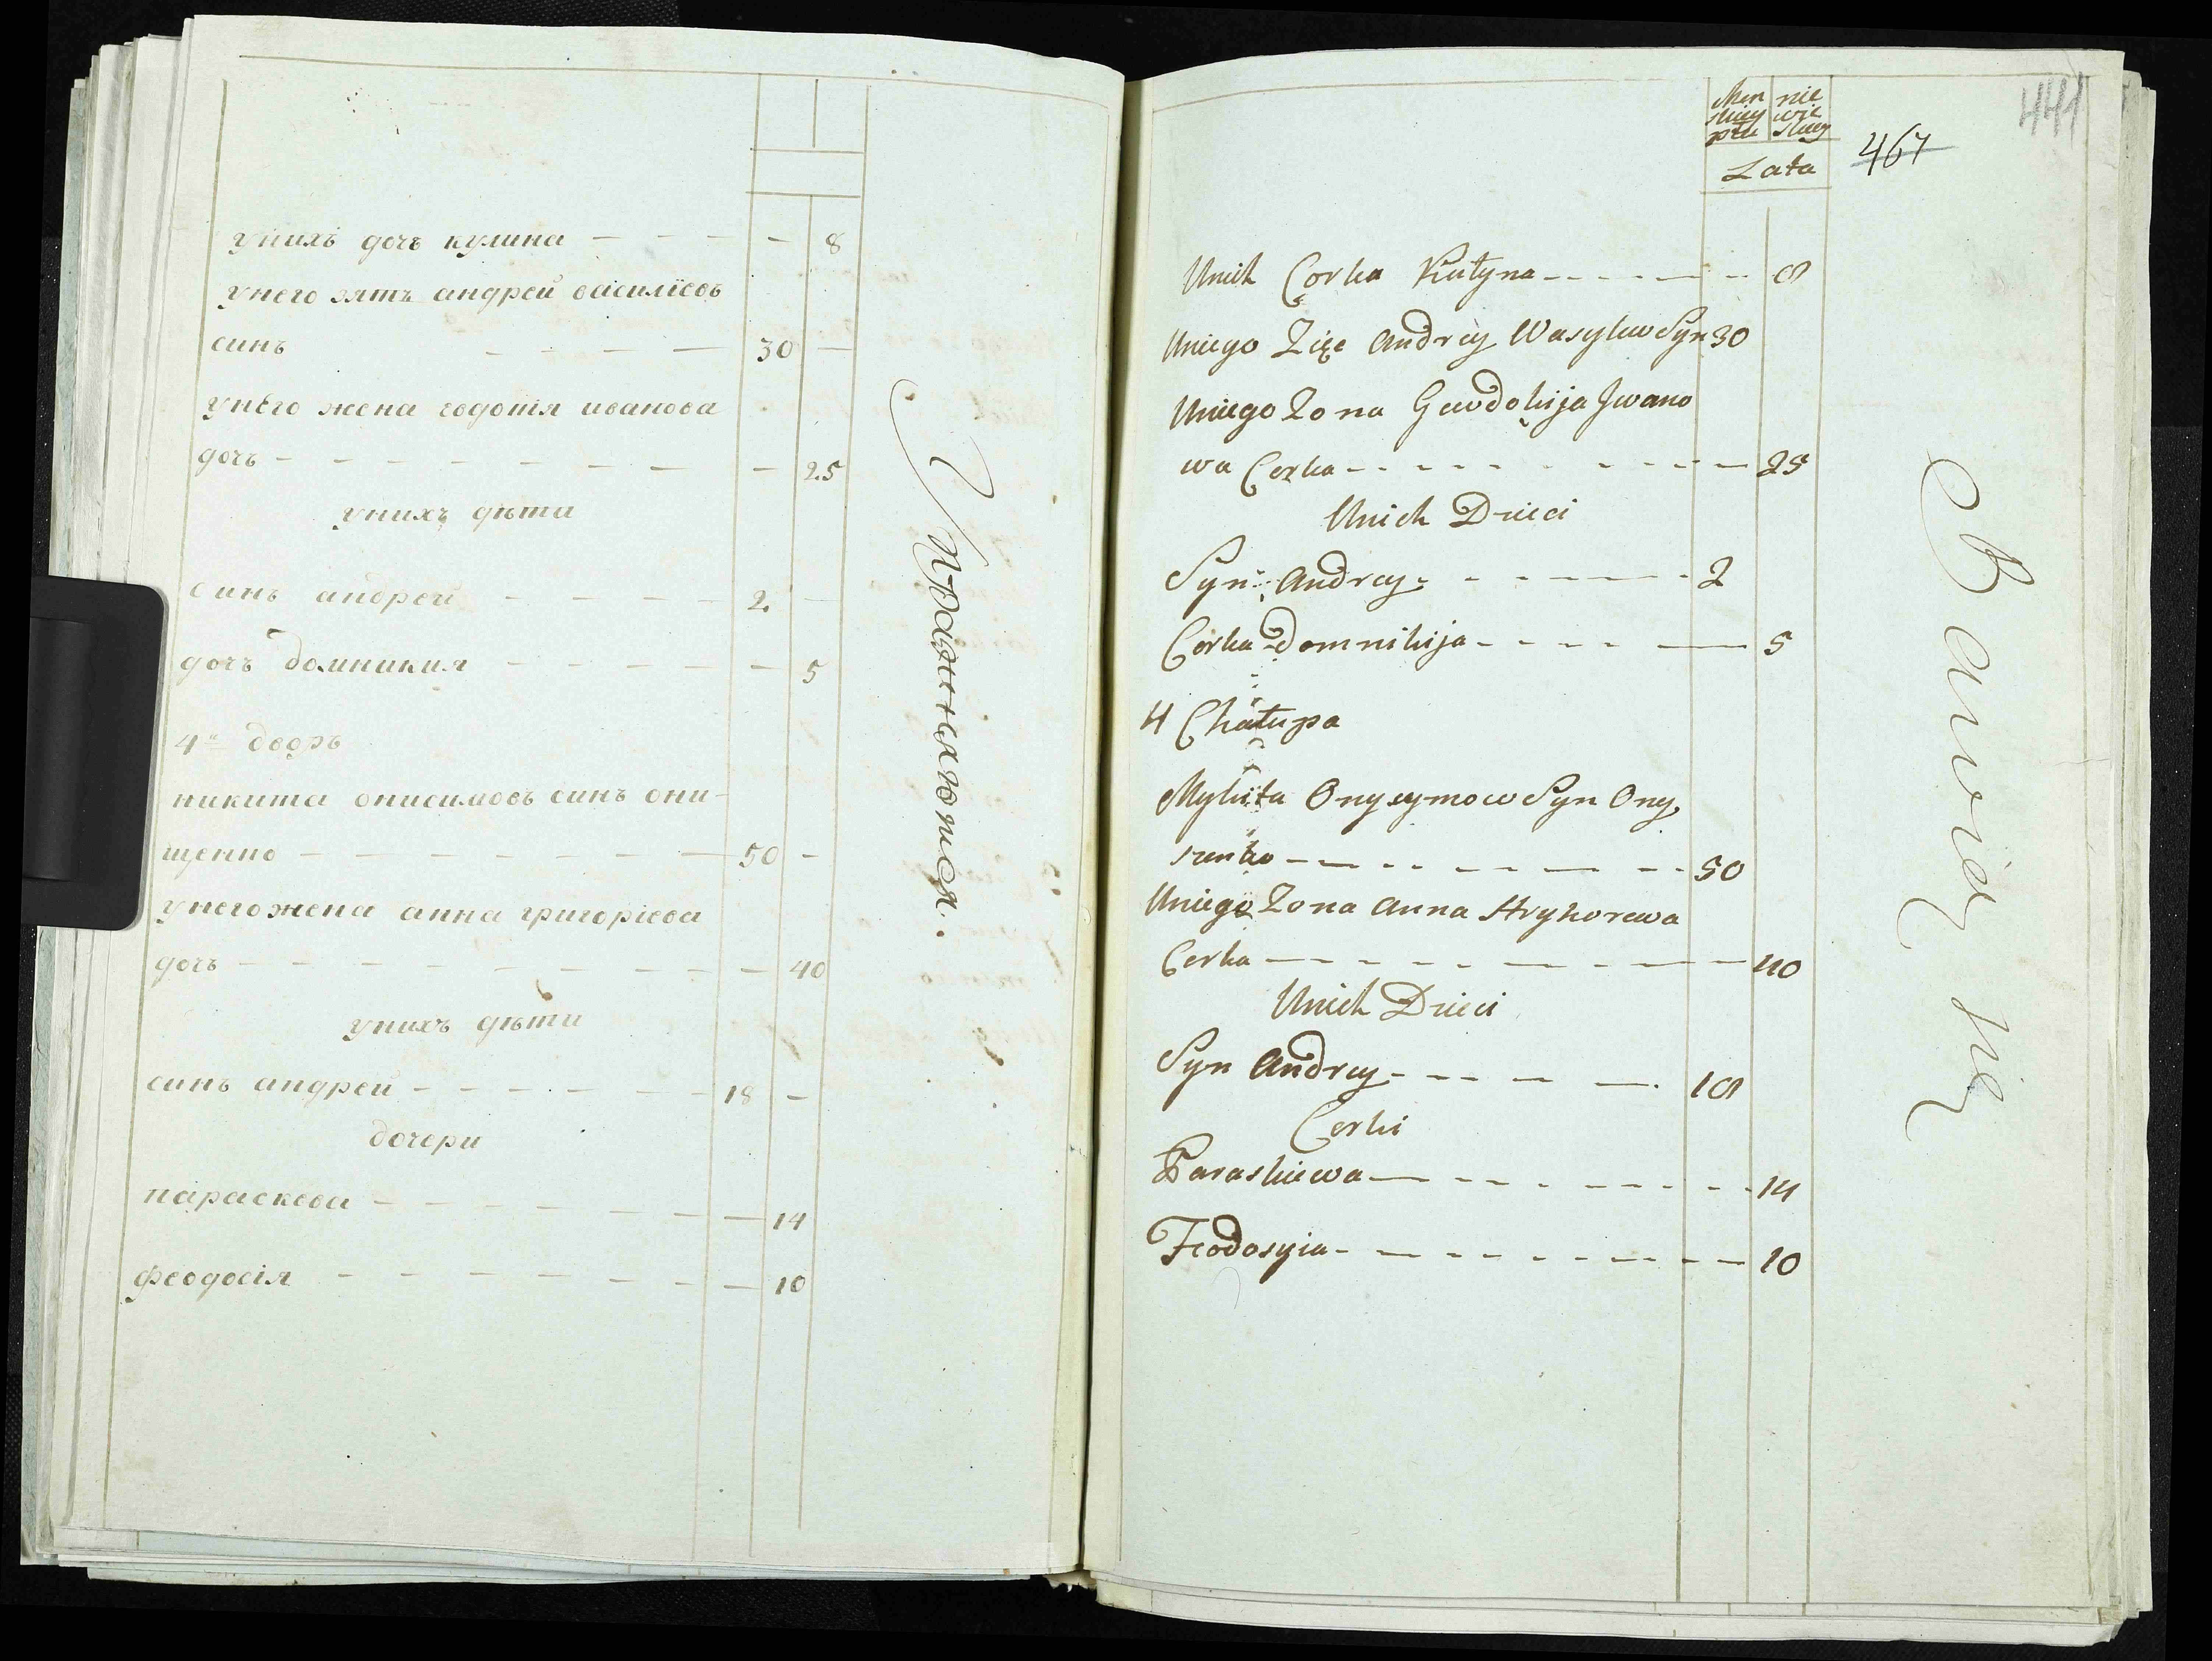 унихъ дочъ кулина — — — — 8
унего зятъ андрей василїевъ
синъ — — — — 30 —
унего жена евдокія иванова
дочъ — — — — — — — — 25
унихъ дѣти
синъ андрей — — — — 2 —
дочъ домникия — — — — — 5
4й дворъ
никита онисимовъ синъ они-
щенко — — — — — — — 50 —
унего жена анна григоріева
дочъ — — — — — — — — 40
унихъ дѣти
синъ андрей — — — — — — 18 —
дочери
параскева — — — — — — — 14
феодосія — — — — — — — 10
упражняются.
441
467
Men skiey płci
nie wie skiey
Lata
Unich Corka Kulyna 8
Uniego Zięc Andrey Wasylew Syn 30
Uniego Zona Gewdokija Iwano
wa Corka 25
Unich Dzieci
Syn Andrey 2
Corka Domnikija 5
4 Chałupa
Mykita Onysymow Syn Ony
szenko 50
Uniego Zona Anna Hryhorewa
Corka 40
Unich Dzieci
Syn Andrey 18
Corki
Paraskiewa 14
Feodosyia 10
Bawią się